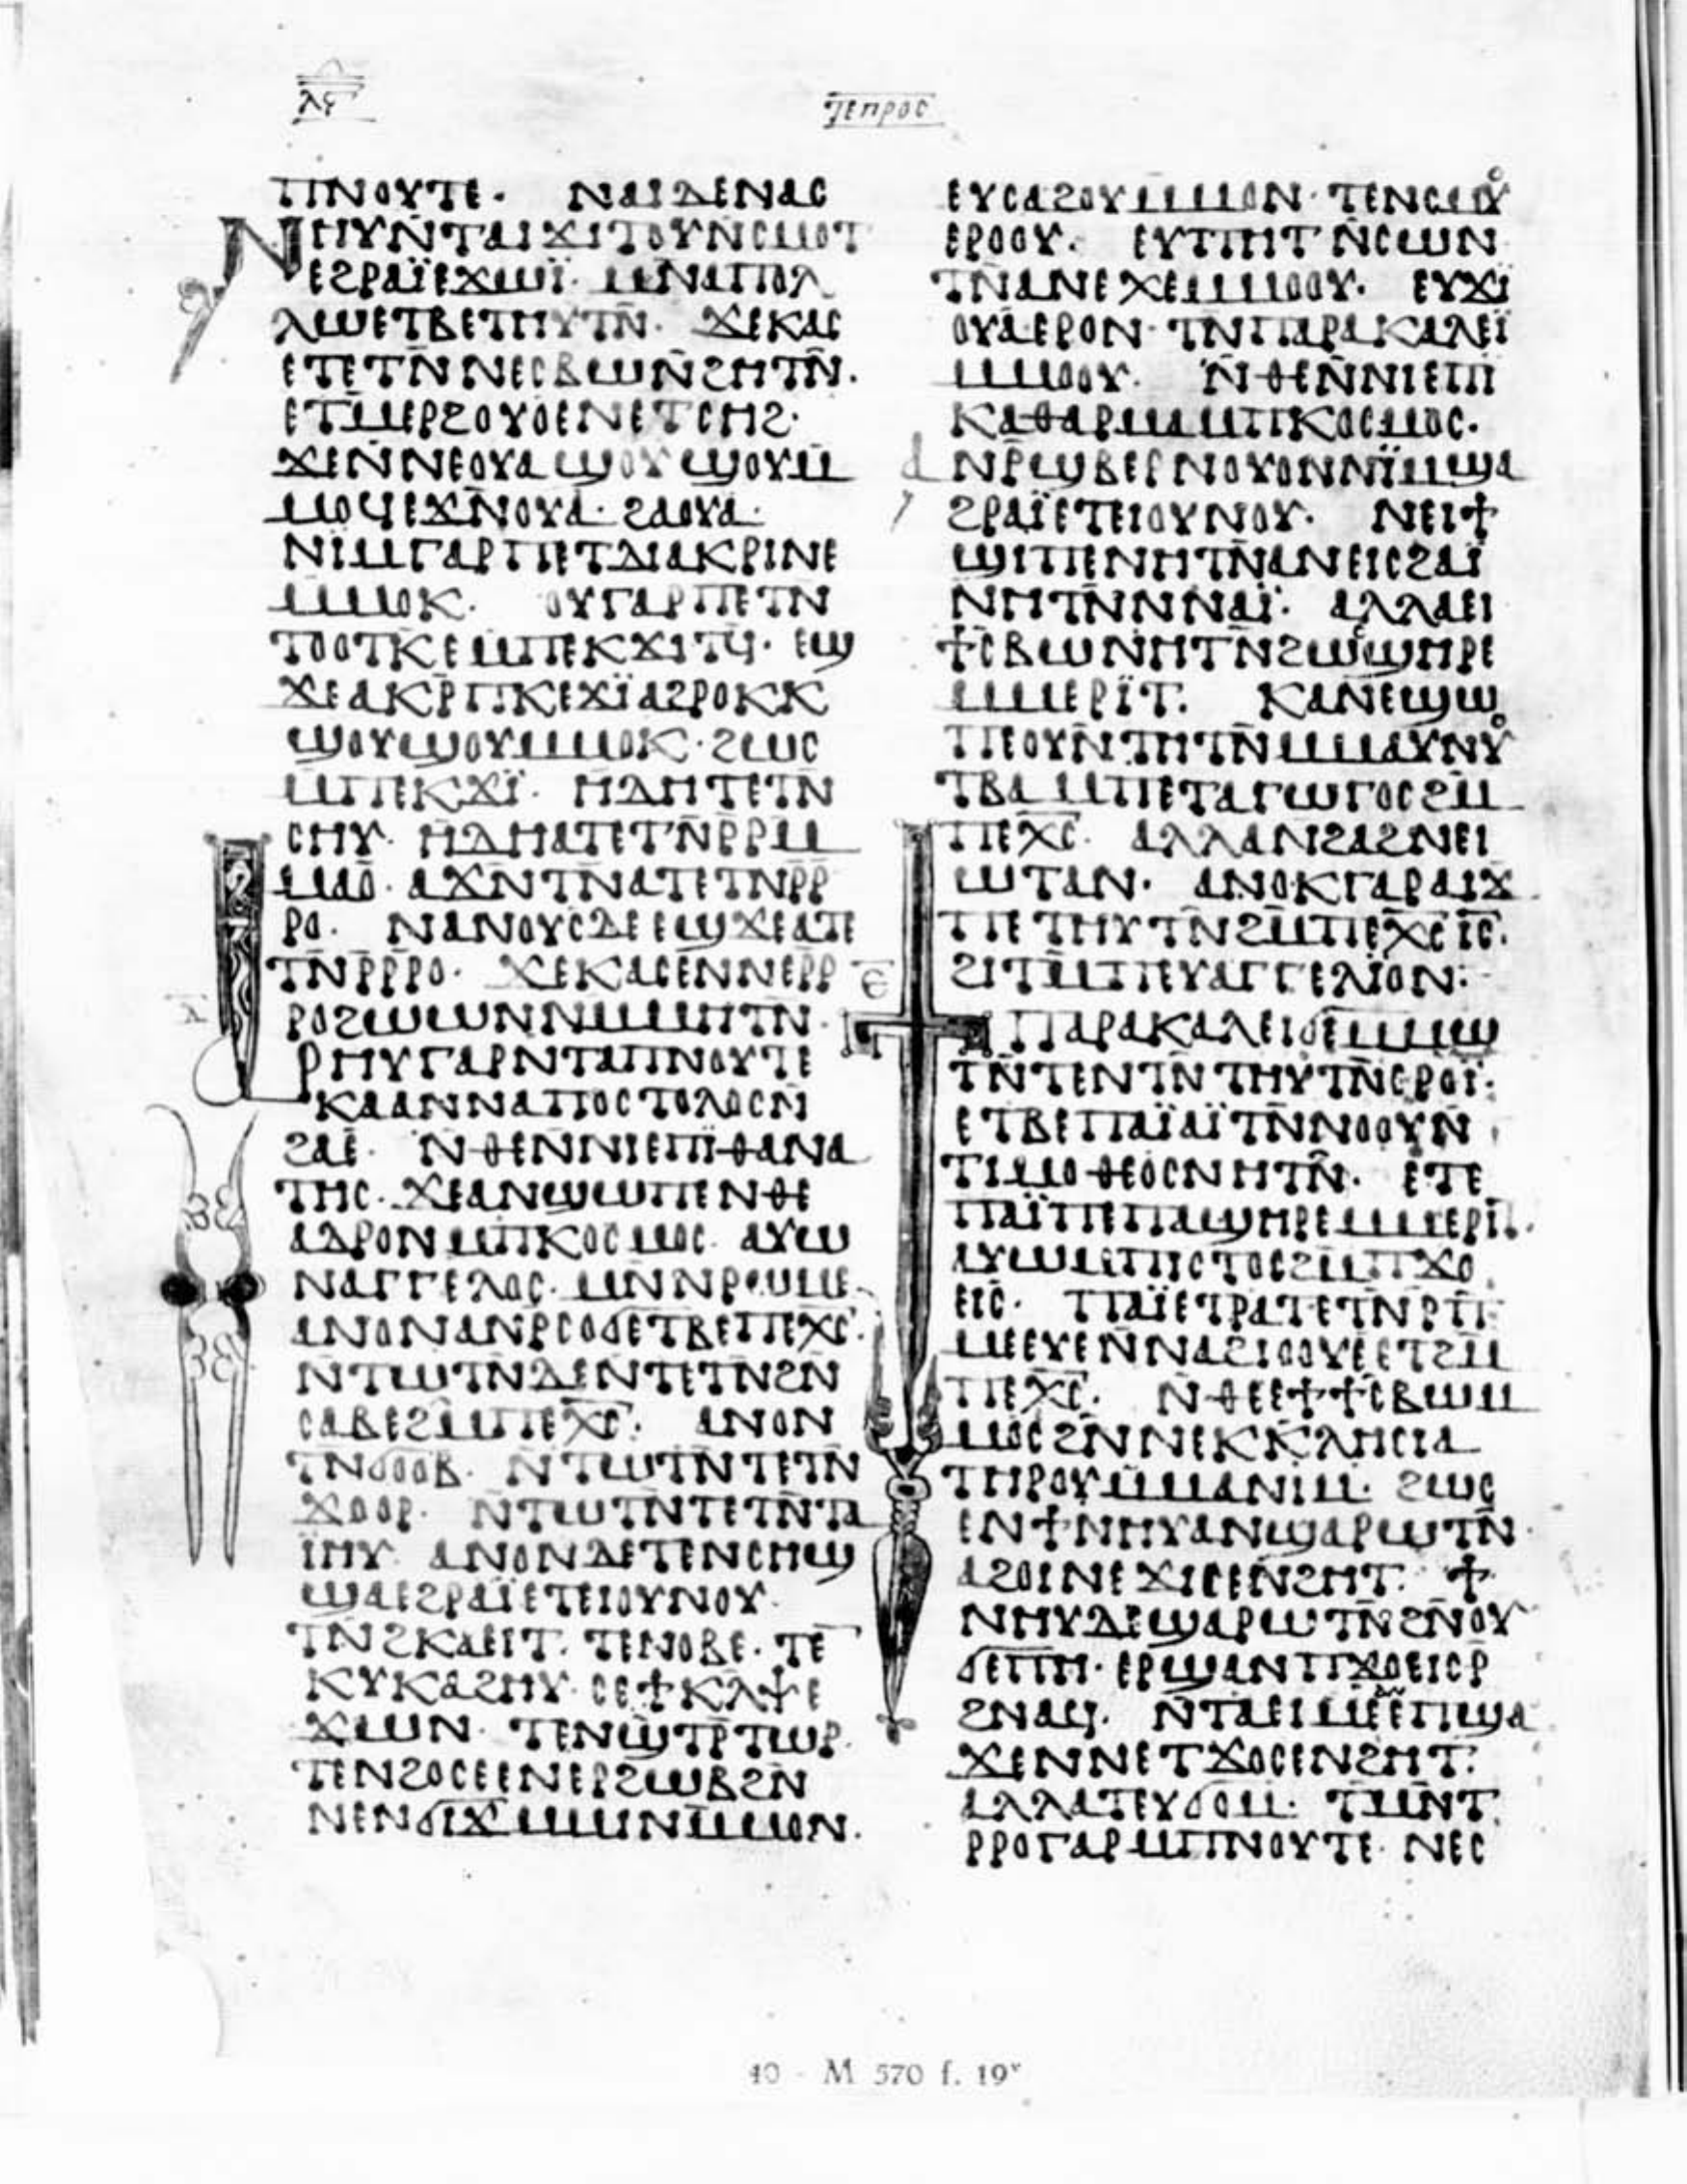 ⲗⲋ
ⲧⲉⲡⲣⲟⲥ
ⲡⲛⲟⲩⲧⲉ· ⲛⲁⲓⲇⲉⲛⲁⲥ
ⲛⲏⲩⲛ̄ⲧⲁⲓϫⲓⲧⲟⲩⲛ̄ⲥⲙⲟⲧ
ⲉϩⲣⲁⲓ̈ⲉϫⲱⲓ̈· ⲙⲛ̄ⲁⲡⲟⲗ
ⲗⲱⲉⲧⲃⲉⲧⲏⲩⲧⲛ̄· ϫⲉⲕⲁⲥ
ⲉⲧⲉⲧⲛ̄ⲛⲉⲥⲃⲱⲛ̄ϩⲏⲧⲛ̄·
ⲉⲧⲙ̄ⲉⲣϩⲟⲩⲟⲉⲛⲉⲧⲥⲏϩ·
ϫⲉⲛ̄ⲛⲉⲟⲩⲁϣⲟⲩϣⲟⲩⲙ̄
ⲙⲟϥⲉϫⲛ̄ⲟⲩⲁ· ϩⲁⲟⲩⲁ·
ⲛⲓⲙⲅⲁⲣⲡⲉⲧⲇⲓⲁⲕⲣⲓⲛⲉ
ⲙ̄ⲙⲟⲕ· ⲟⲩⲅⲁⲣⲡⲉⲧⲛ
ⲧⲟⲟⲧⲕⲉⲙ̄ⲡⲉⲕϫⲓⲧϥ· ⲉϣ
ϫⲉⲁⲕⲣ̄ⲡⲕⲉϫⲓ̈ⲁϩⲣⲟⲕⲕ
ϣⲟⲩϣⲟⲩⲙ̄ⲙⲟⲕ· ϩⲱⲥ
ⲙ̄ⲡⲉⲕϫⲓ̈· ⲏⲇⲏⲧⲉⲧⲛ
ⲥⲏⲩ· ⲏⲇⲏⲁⲧⲉⲧⲛ̄ⲣ̄ⲣⲙ̄
ⲙⲁⲟ· ⲁϫⲛ̄ⲧⲛ̄ⲁⲧⲉⲧⲛ̄ⲣ̄ⲣ
ⲣⲟ· ⲛⲁⲛⲟⲩⲥⲇⲉⲉϣϫⲉⲁⲧⲉ
ⲧⲛ̄ⲣ̄ⲣⲣⲟ· ϫⲉⲕⲁⲥⲉⲛ̄ⲛⲉⲣ̄ⲣ
ⲣⲟϩⲱⲱⲛⲛⲙ̄ⲙⲏⲧⲛ·
ⲗ̄
ⲣⲙⲏⲩⲅⲁⲣⲛⲧⲁⲡⲛⲟⲩⲧⲉ
ⲕⲁⲁⲛⲛⲁⲡⲟⲥⲧⲟⲗⲟⲥⲛ̄
ϩⲁⲉ· ⲛ̄ⲑⲉⲛ̄ⲛⲓⲉⲡⲓⲑⲁⲛⲁ
ⲧⲏⲥ· ϫⲉⲁⲛϣⲱⲡⲉⲛⲑⲉ
ⲁⲇⲣⲟⲛⲙ̄ⲡⲕⲟⲥⲙⲟⲥ· ⲁⲩⲱ
ⲛⲁⲅⲅⲉⲗⲟⲥ· ⲙⲛ̄ⲛⲣⲱⲙⲉ·
ⲁⲛⲟⲛⲁⲛⲣ̄ⲥⲟϭⲉⲧⲃⲉⲡⲉⲭ̄ⲥ̄·
ⲛⲧⲱⲧⲛⲇⲉⲛⲧⲉⲧⲛϩⲛ
ⲥⲁⲃⲉϩⲙ̄ⲡⲉⲭ̄ⲥ̄· ⲁⲛⲟⲛ
ⲧⲛϭⲟⲟⲃ· ⲛ̄ⲧⲱⲧⲛⲧⲉⲧⲛ
ϫⲟⲟⲣ· ⲛ̄ⲧⲱⲧⲛⲧⲉⲧⲛ̄ⲧⲁ
ⲓ̈ⲏⲩ· ⲁⲛⲟⲛⲇⲉⲧⲉⲛⲥⲏϣ
ϣⲁⲉϩⲣⲁⲓ̈ⲉⲧⲉⲓⲟⲩⲛⲟⲩ·
ⲧⲛϩⲕⲁⲉⲓⲧ· ⲧⲉⲛⲟⲃⲉ· ⲧⲉ
ⲕⲩⲕⲁϩⲏⲩ· ⲥⲉϯⲕⲗⲯⲉ
ϫⲱⲛ· ⲧⲉⲛϣⲧⲣ̄ⲧⲱⲣ·
ⲧⲉⲛϩⲟⲥⲉⲉⲛⲉⲣϩⲱⲃϩⲛ
ⲛⲉⲛϭⲓϫⲙ̄ⲙⲓⲛⲙ̄ⲙⲟⲛ·
ⲉⲩⲥⲁϩⲟⲩⲙ̄ⲙⲟⲛ· ⲧⲉⲛⲥⲙⲟⲩ
ⲉⲣⲟⲟⲩ· ⲉⲩⲡⲏⲧⲛ̄ⲥⲱⲛ
ⲧⲛ̄ⲁⲛⲉⲭⲉⲙ̄ⲙⲟⲟⲩ· ⲉⲩϫⲓ
ⲟⲩⲁⲉⲣⲟⲛ· ⲧⲛ̄ⲡⲁⲣⲁⲕⲁⲗⲉⲓ̈
ⲙ̄ⲙⲟⲟⲩ· ⲛ̄ⲑⲉⲛ̄ⲛⲓⲉⲡⲓ
ⲕⲁⲑⲁⲣⲙⲁⲙ̄ⲡⲕⲟⲥⲙⲟⲥ·
ⲁⲛⲣ̄ϣⲃⲉⲣⲛⲟⲩⲟⲛⲛⲓ̈ⲙϣⲁ
ϩⲣⲁⲓ̈ⲉⲧⲉⲓⲟⲩⲛⲟⲩ· ⲛⲉⲓϯ
ϣⲓⲡⲉⲛⲏⲧⲛ̄ⲁⲛⲉⲓⲥϩⲁⲓ̈
ⲛⲏⲧⲛ̄ⲛⲛⲁⲓ̈· ⲁⲗⲗⲁⲉⲓ
ϯⲥⲃⲱⲛⲏⲧⲛϩⲱⲥϣⲏⲣⲉ
ⲙ̄ⲙⲉⲣⲓ̈ⲧ· ⲕⲁⲛⲉϣϣⲱ
ⲡⲉⲟⲩⲛ̄ⲧⲏⲧⲛ̄ⲙ̄ⲙⲁⲩⲛⲟⲩ
ⲧⲃⲁⲙ̄ⲡⲉⲧⲁⲅⲱⲅⲟⲥϩⲙ̄
ⲡⲉⲭ̄ⲥ̄· ⲁⲗⲗⲁⲛϩⲁϩⲛⲉⲓ
ⲱⲧⲁⲛ· ⲁⲛⲟⲕⲅⲁⲣⲁⲓϫ
ⲡⲉⲧⲏⲩⲧⲛϩⲙ̄ⲡⲉⲭ̄ⲥ̄ⲓ̄ⲥ̄·
ϩⲓⲧⲙ̄ⲡⲉⲩⲁⲅⲅⲉⲗⲓ̈ⲟⲛ:
ⲉ̄
ϯⲡⲁⲣⲁⲕⲁⲗⲉⲓϭⲉⲙ̄ⲙⲱ
ⲧⲛ̄ⲧⲉⲛⲧⲛ̄ⲧⲏⲩⲧⲛ̄ⲉⲣⲟⲓ̈:
ⲉⲧⲃⲉⲡⲁⲓ̈ⲁⲓ̈ⲧⲛ̄ⲛⲟⲟⲩⲛ̄
ⲧⲓⲙⲟⲑⲉⲟⲥⲛⲏⲧⲛ̄· ⲉⲧⲉ
ⲡⲁⲓ̈ⲡⲉⲡⲁϣⲏⲣⲉⲙ̄ⲙⲉⲣⲓⲧ·
ⲁⲩⲱⲙ̄ⲡⲓⲥⲧⲟⲥϩⲙ̄ⲡϫⲟ
ⲉⲓⲥ· ⲡⲁⲓ̈ⲉⲧⲣⲁⲧⲉⲧⲛⲣ̄ⲡ
ⲙⲉⲉⲩⲉⲛ̄ⲛⲁϩⲓⲟⲟⲩⲉⲉⲧϩⲙ
ⲡⲉⲭ̄ⲥ̄· ⲛ̄ⲑⲉⲉϯϯⲥⲃⲱⲙ̄
ⲙⲟⲥϩⲛ̄ⲛⲉⲕⲕⲗⲏⲥⲓⲁ
ⲧⲏⲣⲟⲩⲙ̄ⲙⲁⲛⲓⲙ· ϩⲱⲥ
ⲉⲛϯⲛⲏⲩⲁⲛϣⲁⲣⲱⲧⲛ̄·
ⲁϩⲟⲓⲛⲉϫⲓⲥⲉⲛ̄ϩⲏⲧ· ϯ
ⲛⲏⲩⲇⲉϣⲁⲣⲱⲧⲛ̄ϩⲛ̄ⲟⲩ
ϭⲉⲡⲏ· ⲉⲣϣⲁⲛⲡϫⲟⲉⲓⲥⲣ̄
ϩⲛⲁϥ· ⲛ̄ⲧⲁⲉⲓⲙⲉⲉⲡϣⲁ
ϫⲉⲛⲛⲉⲧϫⲟⲥⲉⲛϩⲏⲧ·
ⲁⲗⲗⲁⲧⲉⲩϭⲟⲙ· ⲧⲙⲛ̄ⲧ
ⲣⲣⲟⲅⲁⲣⲙ̄ⲡⲛⲟⲩⲧⲉ· ⲛⲉⲥ
40 - M 570 f. 19ᵛ